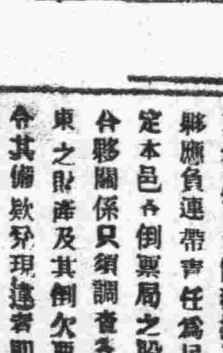 夥應負連帶責任爲
定本邑各倒票局之股
合夥關係只須調查
東之財產及其倒欠票
令其備欵兌現違者即